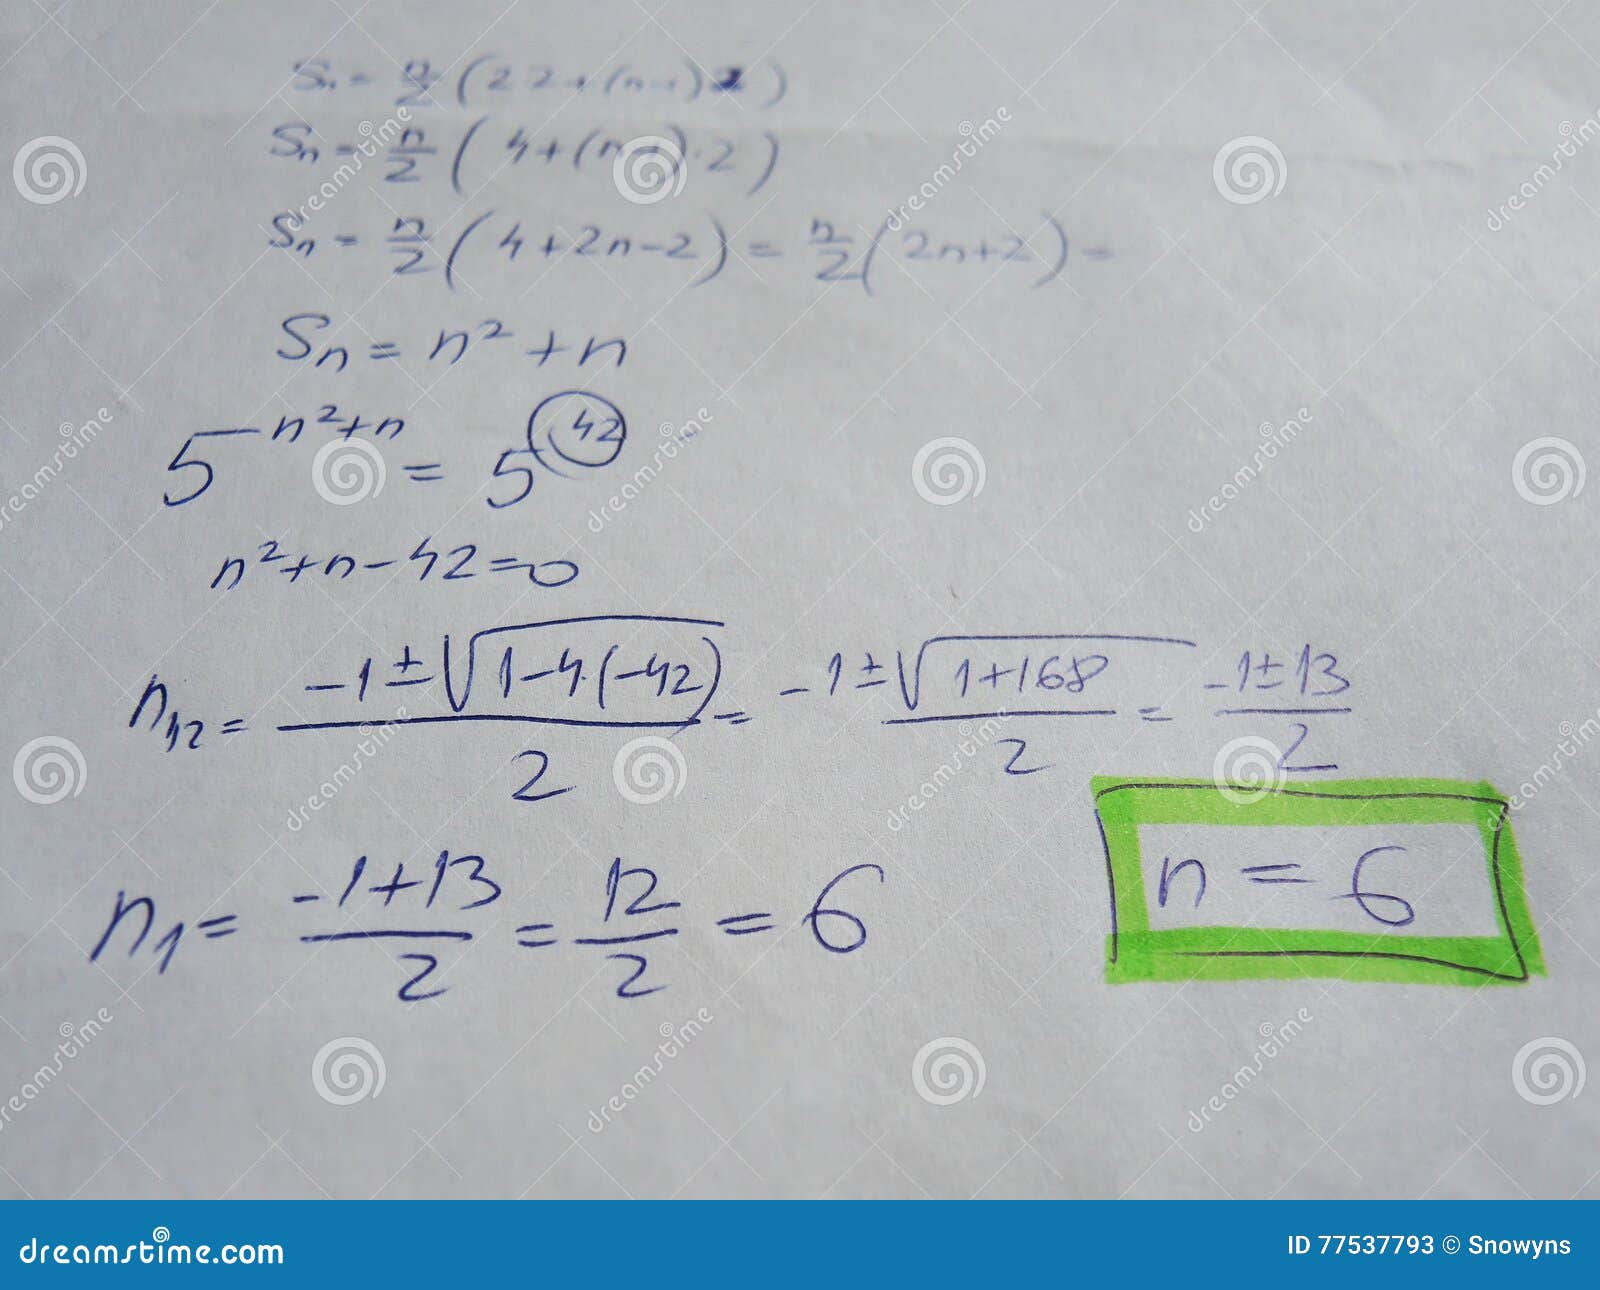 Sₙ = n/2 (2·2+(n-1)·2)
Sₙ = n/2 (4+(n-1)·2)
Sₙ = n/2 (4+2n-2) = n/2 (2n+2) =
Sₙ = n²+n
5^(n²+n) = 5^(42)
n²+n-42=0
n₁,₂ = (-1±√(1-4·(-42)))/2 = (-1±√(1+168))/2 = (-1±13)/2
n₁ = (-1+13)/2 = 12/2 = 6
n = 6
dreamstime
dreamstime.com
ID 77537793 © Snowyns